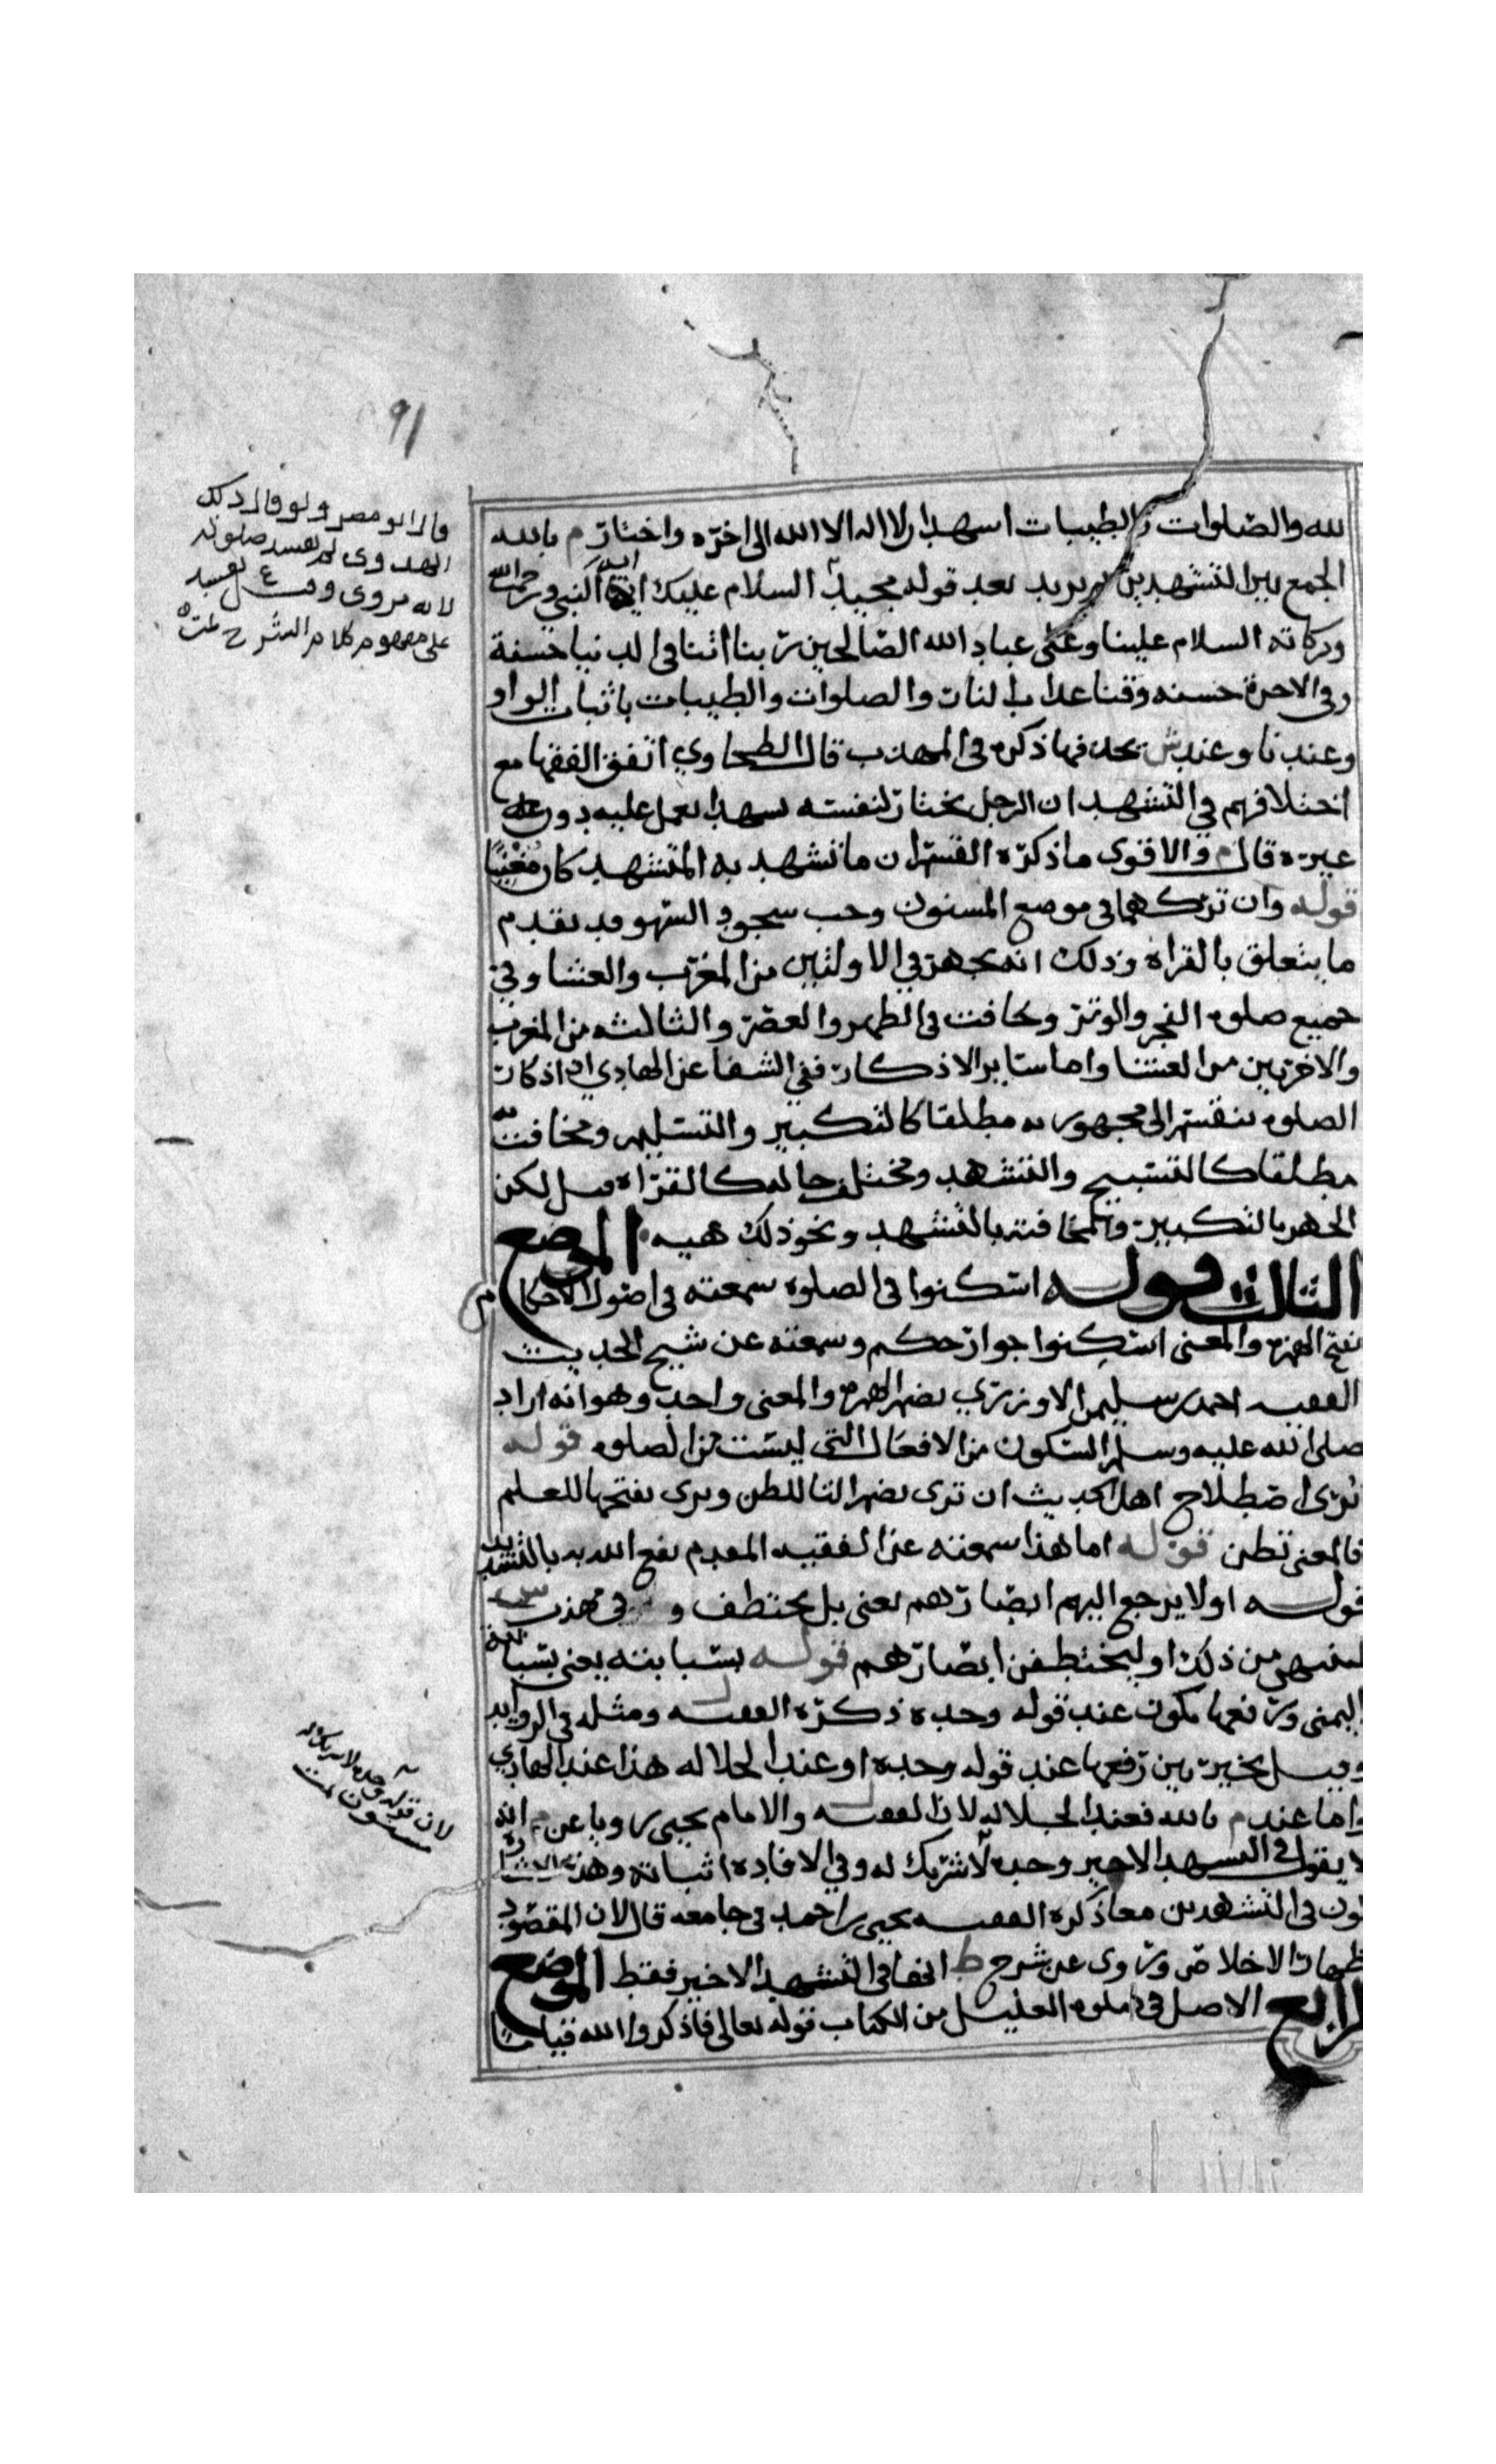 ٩١
لله والصلوات والطيبات اشهد ان لا اله الا الله الى اخره واختار م بالله
الجمع بين التشهدين ثم يزيد بعد قوله مجيد السلام عليك ايها النبي ورحمة الله
وبركاته السلام علينا وعلى عباد الله الصالحين ربنا اتنا في الدنيا حسنة
وفي الاخرة حسنه وقنا عذاب النار والصلوات والطيبات باثبات الواو
وعندنا وعند ش بحذفها ذكره في المهذب قال الطحاوي اتفق الفقها مع
اختلافهم في التشهد ان الرجل يختار لنفسه تشهدا يعمل عليه دون
غيره قال م والاقوى ما ذكره القسم ان ما تشهد به المتشهد كان مغنيًا
قوله وان تركهما في موضع المسنون وجب سجود السهو قد تقدم
ما يتعلق بالقراة وذلك انه يجهر في الاولتين من المغرب والعشا وفي
جميع صلوة الفجر والوتر ويخافت في الظهر والعصر والثالثه من المغرب
والاخرتين من العشا واما سائر الاذكار ففي الشفا عن الهادي ان اذكار
الصلوة تنقسم الى مجهور به مطلقا كالتكبير والتسليم ومخافت به
مطلقا كالتسبيح والتشهد ومختلف حاله كالقراة قيل لكن
الجهر بالتكبير والمخافتة بالتشهد ونحو ذلك هيه الموضع
الثالث قوله اسكنوا في الصلوة سمعته في اصول الاحكام
بفتح الهمزة والمعنى اسكنوا جوارحكم وسمعته عن شيخ الحديث
الفقيه احمد بن سليمن الاوزري بضم الهمزة والمعنى واحد وهو انه اراد
صلى الله عليه وسلم السكون من الافعال التي ليست من الصلوه قوله
تُرى اصطلاح اهل الحديث ان ترى بضم التا للظن وترى بفتحها للعلم
فالمعنى تظن قوله اما هذا سمعته عن الفقيه المقدم نفع الله به بالتشديد
قوله اولا يرجع اليهم ابصارهم يعني بل يختطف و في مهذب ش
لينتهين من ذلك او ليختطفن ابصارهم قوله بسبابته يعني بسبابة
اليمنى ورفعها يكون عند قوله وحده ذكره الفقيه ل ومثله في الزوايد
وقيل يخير بين رفعها عند قوله وحده او عند الجلاله هذا عند الهادي
واما عند م بالله فعند الجلاله لان الفقيه ل والامام يحيى رويا عن م انه
لا يقول في التشهد الاخير وحده لا شريك له وفي الافاده اثباته وهذه الاشارة
تكون في التشهدين معا ذكره الفقيه يحيى بن احمد في جامعه قال لان المقصود
اظهار الاخلاص وروى عن شرح ط انها في التشهد الاخير فقط الموضع
الرابع الاصل في صلوة العليل من الكتاب قوله تعالى فاذكروا الله قياما
قال ابو مضر ولو قال ذلك
الهدوي لم تفسد صلوته
لانه مروي وقيل ع تفسد
على مفهوم كلام الشرح تمت
لان قوله وحده لا شريك له